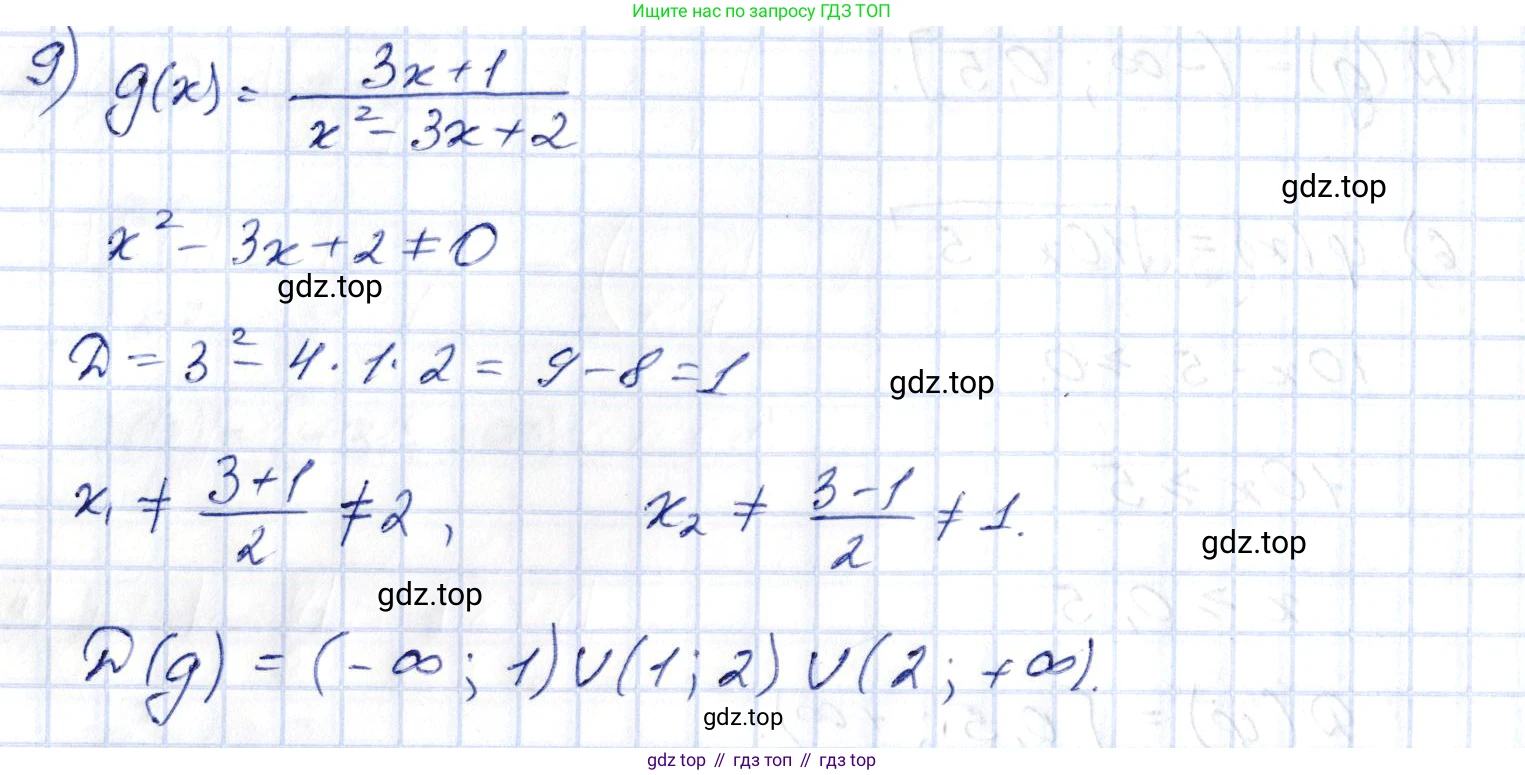 Ищите нас по запросу ГДЗ ТОП
9) g(x) = (3x+1)/(x²-3x+2)
gdz.top
x² - 3x + 2 ≠ 0
gdz.top
D = 3² - 4 · 1 · 2 = 9 - 8 = 1
gdz.top
x₁ ≠ (3+1)/2 ≠ 2, x₂ ≠ (3-1)/2 ≠ 1.
gdz.top
gdz.top
D(g) = (-∞; 1) ∪ (1; 2) ∪ (2; +∞).
gdz.top
gdz top // гдз топ // гдз top